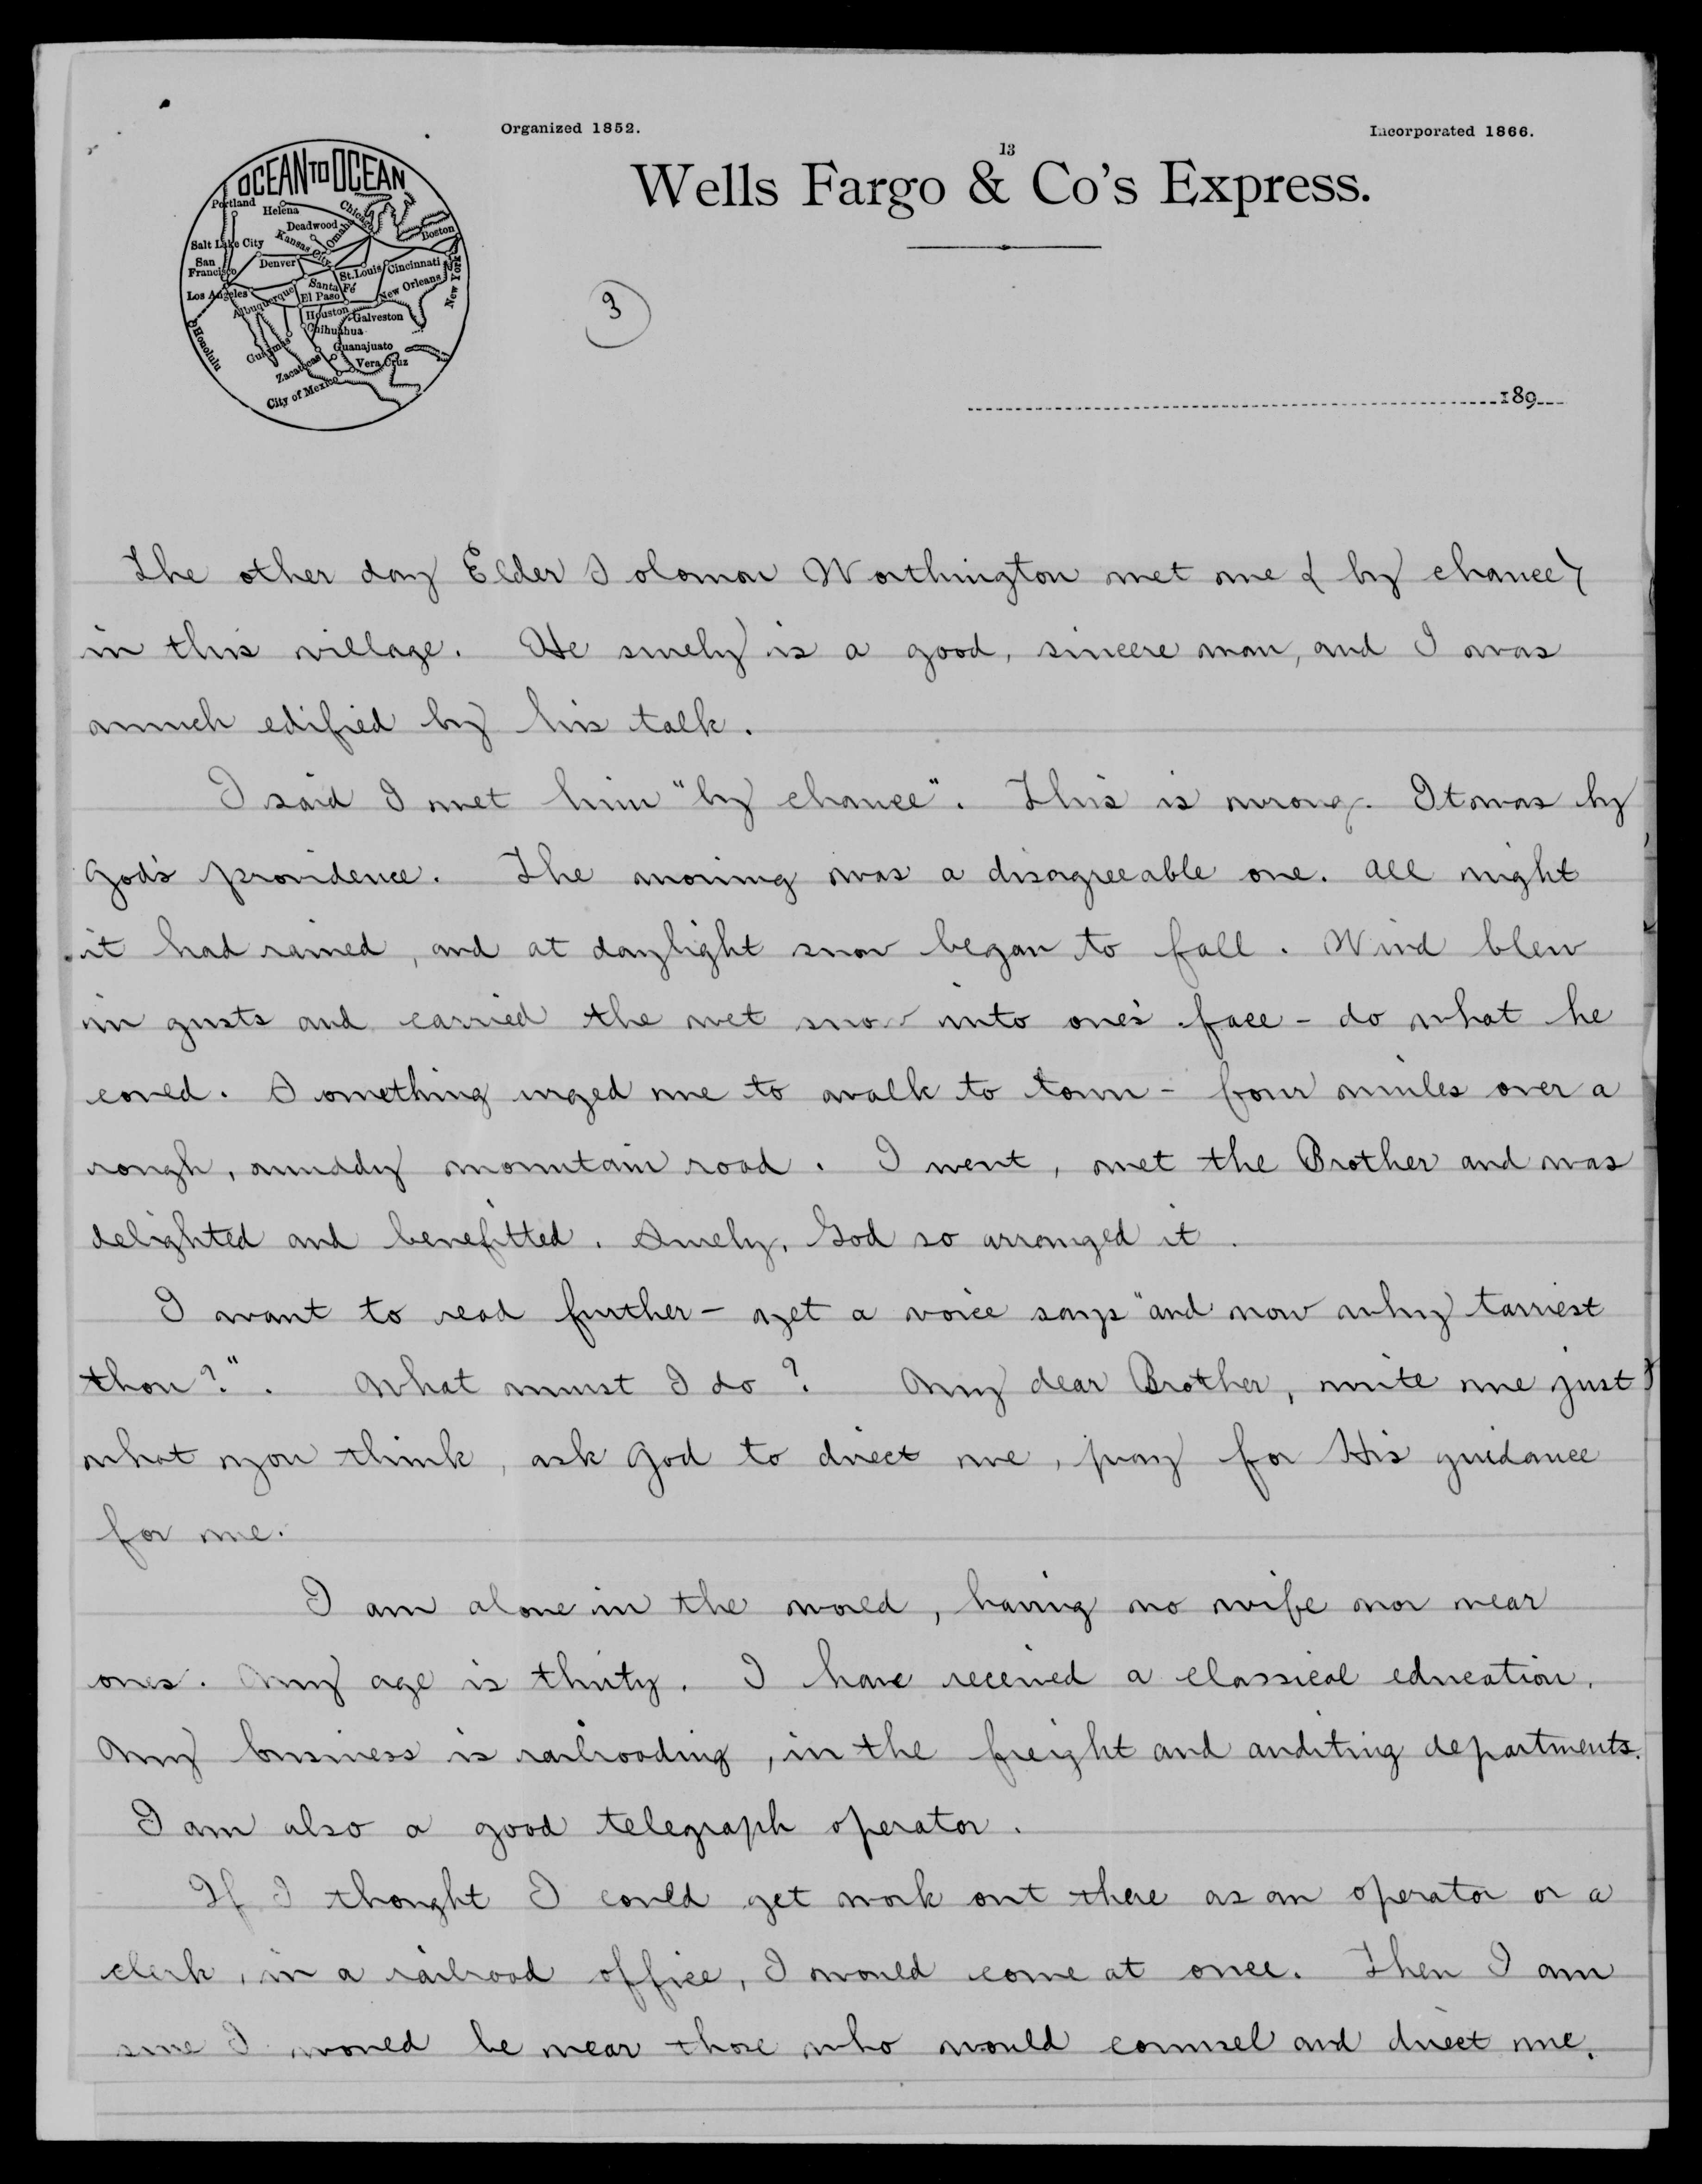 Organized 1852.
Incorporated 1866.
13
Wells Fargo & Co's Express.
OCEAN TO OCEAN
Portland
Helena
Chicago
Deadwood
Omaha
Boston
Salt Lake City
Kansas City
San Francisco
Denver
St. Louis
Cincinnati
New York
Los Angeles
Santa Fé
New Orleans
Albuquerque
El Paso
Houston
Galveston
Honolulu
Chihuahua
Guaymas
Guanajuato
Zacatecas
Vera Cruz
City of Mexico
3
189
The other day Elder Solomon Worthington met me (by chance)
in this village. He surely is a good, sincere man, and I was
much edified by his talk.
I said I met him "by chance". This is wrong. It was by
God's providence. The morning was a disagreeable one. All night
it had rained, and at daylight snow began to fall. Wind blew
in gusts and carried the wet snow into one's face - do what he
could. Something urged me to walk to town - four miles over a
rough, muddy mountain road. I went, met the Brother and was
delighted and benefitted. Surely, God so arranged it.
I want to read further - yet a voice says "and now why tarriest
thou?". What must I do? My dear Brother, write me just
what you think, ask God to direct me, pray for His guidance
for me.
I am alone in the world, having no wife nor near
ones. My age is thirty. I have received a classical education.
My business is railroading, in the freight and auditing departments.
I am also a good telegraph operator.
If I thought I could get work out there as an operator or a
clerk, in a railroad office, I would come at once. Then I am
sure I would be near those who would counsel and direct me.